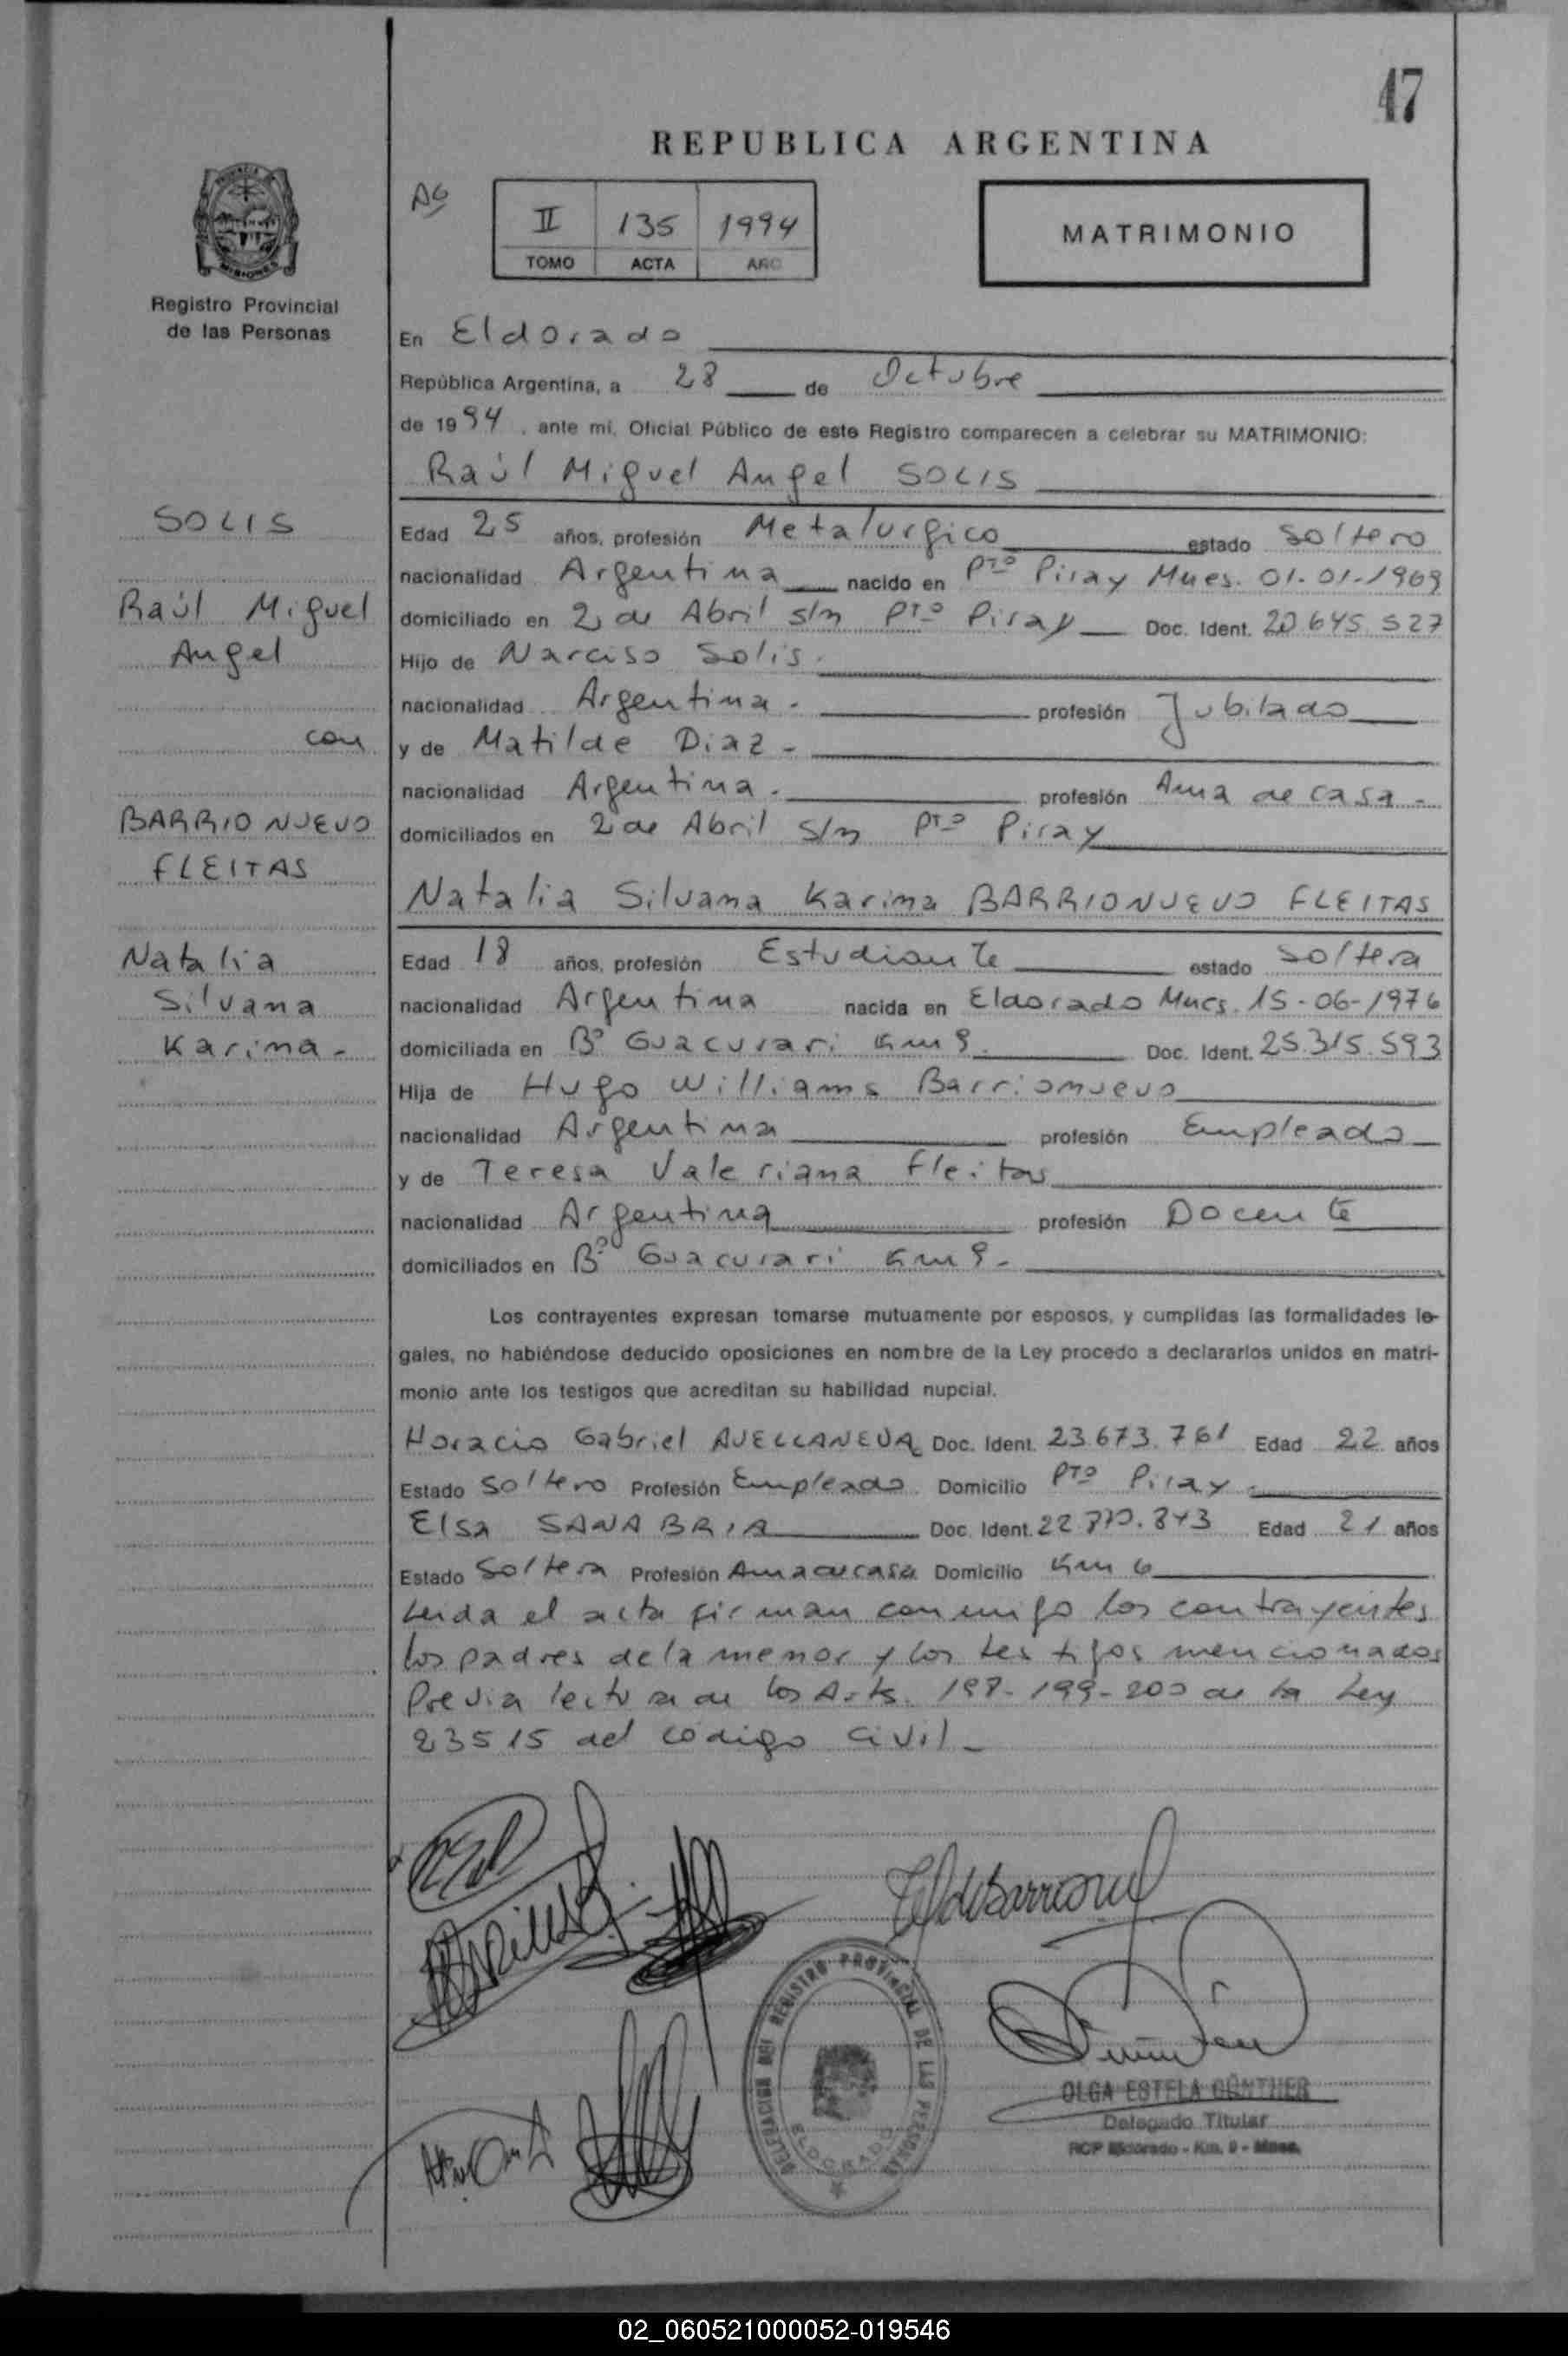 47
REPUBLICA ARGENTINA
AG
II 135 1994
TOMO ACTA AÑO
MATRIMONIO
PROVINCIA DE
MISIONES
Registro Provincial
de las Personas
En Eldorado
República Argentina, a 28 de Octubre
de 1994, ante mí, Oficial Público de este Registro comparecen a celebrar su MATRIMONIO:
Raúl Miguel Angel SOLIS
SOLIS
Raúl Miguel
Angel
con
BARRIONUEVO
FLEITAS
Natalia
Silvana
Karina -
Edad 25 años, profesión Metalurgico estado Soltero
nacionalidad Argentina nacido en Pto Piray Mnes. 01-01-1969
domiciliado en 2 de Abril s/n Pto Piray Doc. Ident. 20 645 527
Hijo de Narciso Solis.
nacionalidad Argentina - profesión Jubilado
y de Matilde Diaz -
nacionalidad Argentina - profesión Ama de casa -
domiciliados en 2 de Abril s/n Pto Piray
Natalia Silvana Karina BARRIONUEVO FLEITAS
Edad 18 años, profesión Estudiante estado Soltera
nacionalidad Argentina nacida en Eldorado Mnes. 15-06-1976
domiciliada en Bº Guacurari Km 9. Doc. Ident. 25.315.593
Hija de Hugo Williams Barrionuevo
nacionalidad Argentina profesión Empleado
y de Teresa Valeriana Fleitas
nacionalidad Argentina profesión Docente
domiciliados en Bº Guacurari Km 9 -
Los contrayentes expresan tomarse mutuamente por esposos, y cumplidas las formalidades le-
gales, no habiéndose deducido oposiciones en nombre de la Ley procedo a declararlos unidos en matri-
monio ante los testigos que acreditan su habilidad nupcial.
Horacio Gabriel AVELLANEDA Doc. Ident. 23.673.761 Edad 22 años
Estado Soltero Profesión Empleado Domicilio Pto Piray
Elsa SANABRIA Doc. Ident. Edad 21 años
Estado Soltera Profesión Ama de casa Domicilio Km 6
Leida el acta firman conmigo los contrayentes
los padres de la menor y los testigos mencionados
Previa lectura de los Arts. 198-199-200 de la Ley
23515 del código civil -
DELEGACION DEL REGISTRO PROVINCIAL DE LAS PERSONAS
ELDORADO
OLGA ESTELA GÜNTHER
Delegado Titular
RCP Eldorado - Km. 9 - Mnes.
02_060521000052-019546